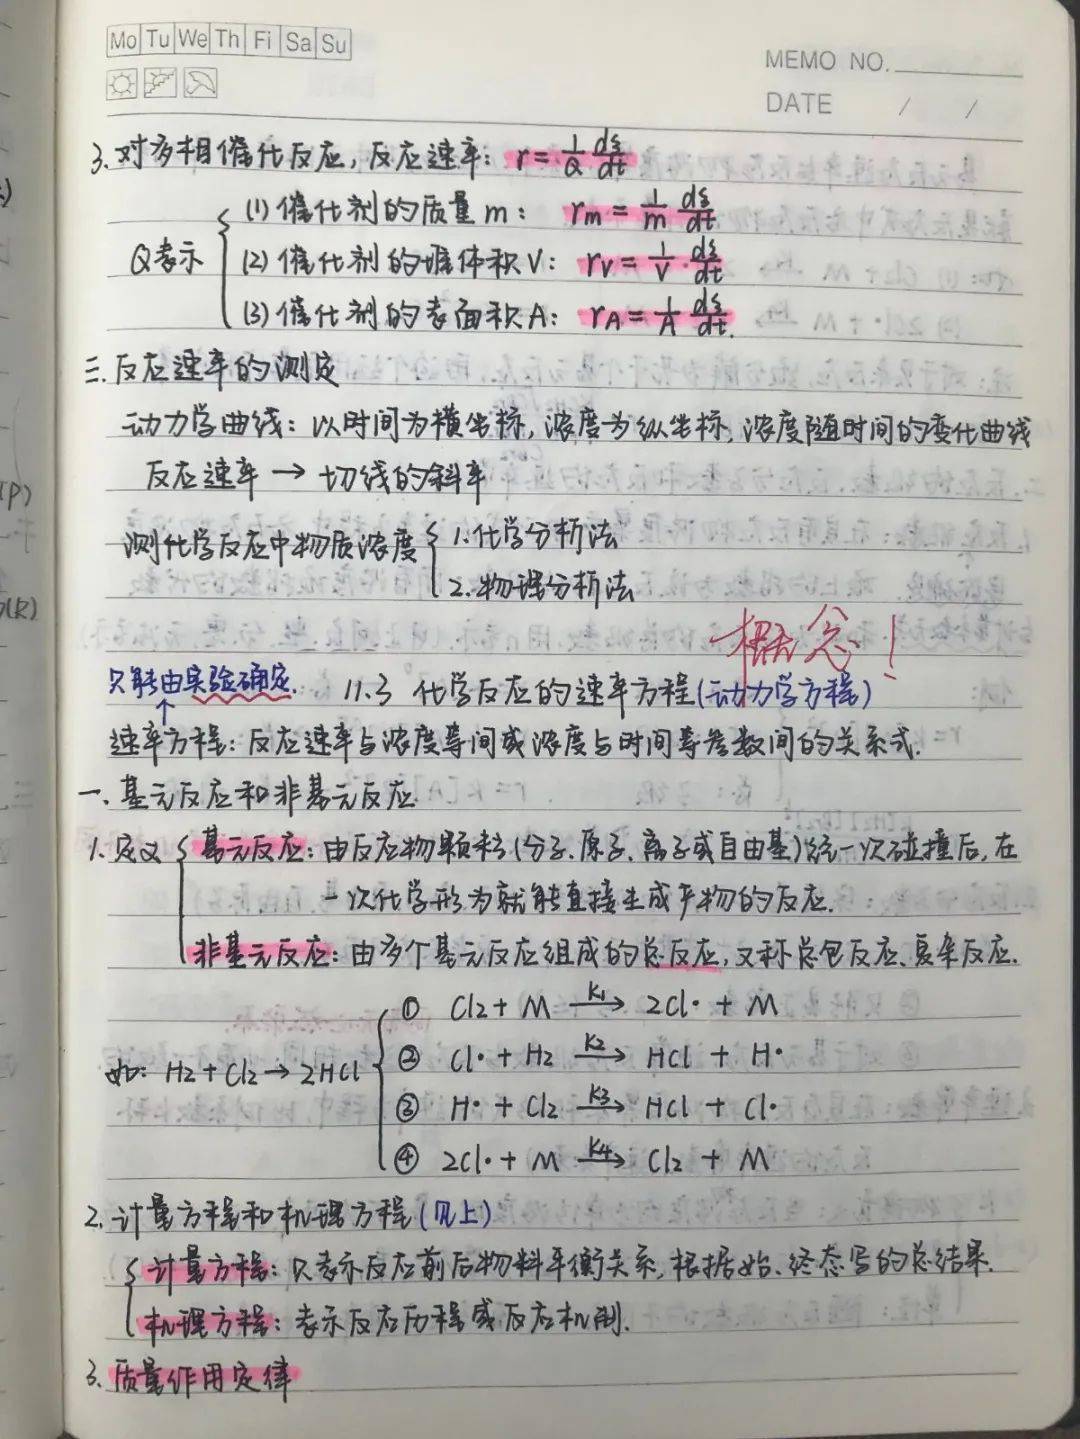 Mo Tu We Th Fi Sa Su
MEMO NO.
DATE / /
3. 对多相催化反应, 反应速率: r = 1/Q dξ/dt
(1) 催化剂的质量 m: rm = 1/m dξ/dt
Q表示 (2) 催化剂的堆体积 V: rv = 1/V · dξ/dt
(3) 催化剂的表面积 A: rA = 1/A dξ/dt.
三. 反应速率的测定
动力学曲线: 以时间为横坐标, 浓度为纵坐标, 浓度随时间的变化曲线
反应速率 → 切线的斜率
测化学反应中物质浓度 1. 化学分析法
2. 物理分析法
概念!
只能由实验确定. 11.3 化学反应的速率方程(动力学方程)
↑
速率方程: 反应速率与浓度等间或浓度与时间等参数间的关系式.
一. 基元反应和非基元反应
1. 定义 基元反应: 由反应物颗粒(分子、原子、离子或自由基)经一次碰撞后, 在
一次化学形为就能直接生成产物的反应.
非基元反应: 由多个基元反应组成的总反应, 又称总包反应、复杂反应.
① Cl2 + M —K1→ 2Cl· + M
② Cl· + H2 —K2→ HCl + H·
如: H2 + Cl2 → 2HCl
③ H· + Cl2 —K3→ HCl + Cl·
④ 2Cl· + M —K4→ Cl2 + M
2. 计量方程和机理方程(见上)
计量方程: 只表示反应前后物料平衡关系, 根据始、终态写的总结果.
机理方程: 表示反应历程或反应机制.
3. 质量作用定律